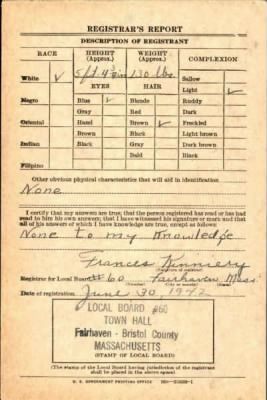 REGISTRAR'S REPORT
DESCRIPTION OF REGISTRANT
RACE HEIGHT (Approx.) WEIGHT (Approx.) COMPLEXION
White ✓ 5 ft 4 3/4 in 130 lbs. Sallow
EYES HAIR Light ✓
Negro Blue ✓ Blonde Ruddy
Gray Red Dark
Oriental Hazel Brown ✓ Freckled
Brown Black Light brown
Indian Black Gray Dark brown
Bald Black
Filipino
Other obvious physical characteristics that will aid in identification
None
I certify that my answers are true; that the person registered has read or has had
read to him his own answers; that I have witnessed his signature or mark and that
all of his answers of which I have knowledge are true, except as follows:
None to my Knowledge
Frances
(Signature of registrar)
Registrar for Local Board 60 Fairhaven Mass
(Number) (City or county) (State)
Date of registration June 30, 1942
LOCAL BOARD #60
TOWN HALL
Fairhaven - Bristol County
MASSACHUSETTS
(STAMP OF LOCAL BOARD)
(The stamp of the Local Board having jurisdiction of the registrant
shall be placed in the above space)
U. S. GOVERNMENT PRINTING OFFICE